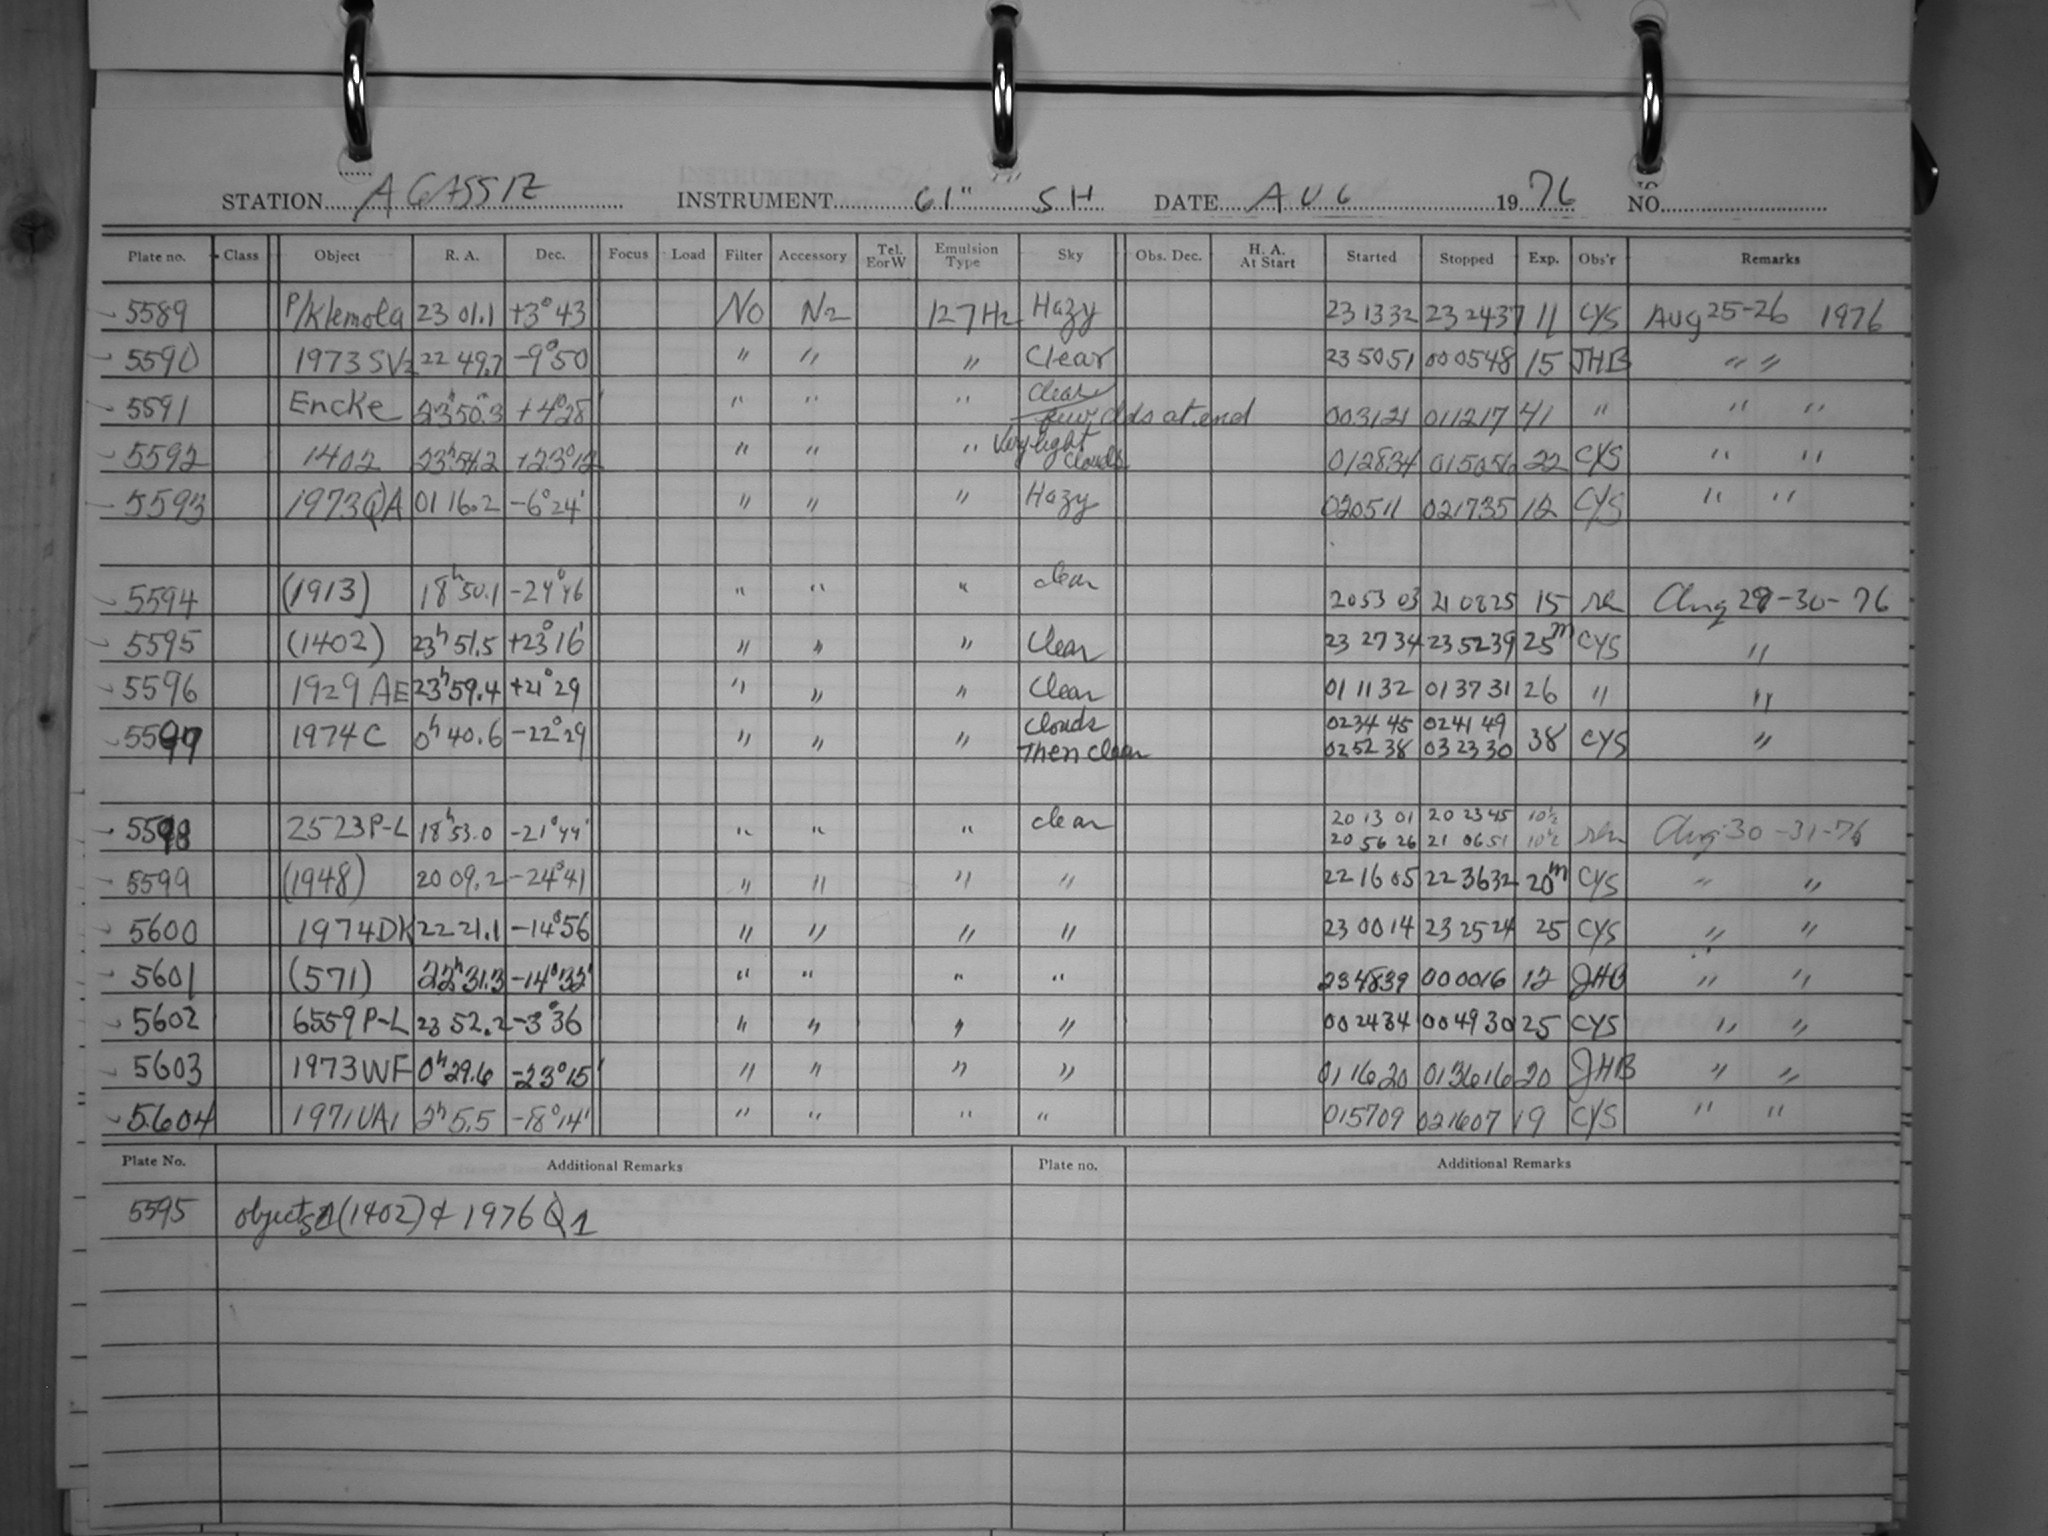 STATION AGASSIZ INSTRUMENT 61" SH DATE AUG 1976 NO
Plate no. Class Object R. A. Dec. Focus Load Filter Accessory Tel. E or W Emulsion Type Sky Obs. Dec. H. A. At Start Started Stopped Exp. Obs'r Remarks
5589 P/Klemola 23 01.1 +3°43 NO N2 127H2 Hazy 23 13 32 23 24 37 11 CYS Aug 25-26 1976
5590 1973 SV2 22 49.7 -9°50 " " " Clear 23 50 51 00 05 48 15 JHB " "
5591 Encke 23h50.3 +4°28' " " " Clear few clds at end 003121 011217 41 " " "
5592 1402 23h54.2 +23°12 " " " Very light clouds 012834 015056 22 CYS " "
5593 1973QA 01 16.2 -6°24' " " " Hazy 020511 021735 12 CYS " "
5594 (1913) 18h50.1 -24°46 " " " clear 20 53 03 21 08 25 15 Aug 29-30-76
5595 (1402) 23h51.5 +23°16' " " " Clear 23 27 34 23 52 39 25m CYS "
5596 1929 AE 23h59.4 +21°29 " " " Clear 01 11 32 01 37 31 26 " "
5597 1974C 0h40.6 -22°29 " " " Clouds Then clear 0234 45 0241 49 0252 38 03 23 30 38 CYS "
5598 2523P-L 18h53.0 -21°44' " " " clear 20 13 01 20 23 45 10½ 20 56 26 21 06 51 10½ Aug 30-31-76
5599 (1948) 20 09.2 -24°41 " " " " 22 16 05 22 36 32 20m CYS " "
5600 1974DK 22 21.1 -14°56 " " " " 23 00 14 23 25 24 25 CYS " "
5601 (571) 22h31.3 -14°32' " " " " 234839 000016 12 JHB " "
5602 6559 P-L 23 52.2 -3°36 " " " " 00 24 34 00 49 30 25 CYS " "
5603 1973WF 0h29.6 -23°15' " " " " 01 16 20 01 36 16 20 JHB " "
5604 1971UA1 2h5.5 -18°14' " " " " 015709 021607 19 CYS " "
Plate No. Additional Remarks Plate no. Additional Remarks
5595 objects (1402) & 1976 Q1